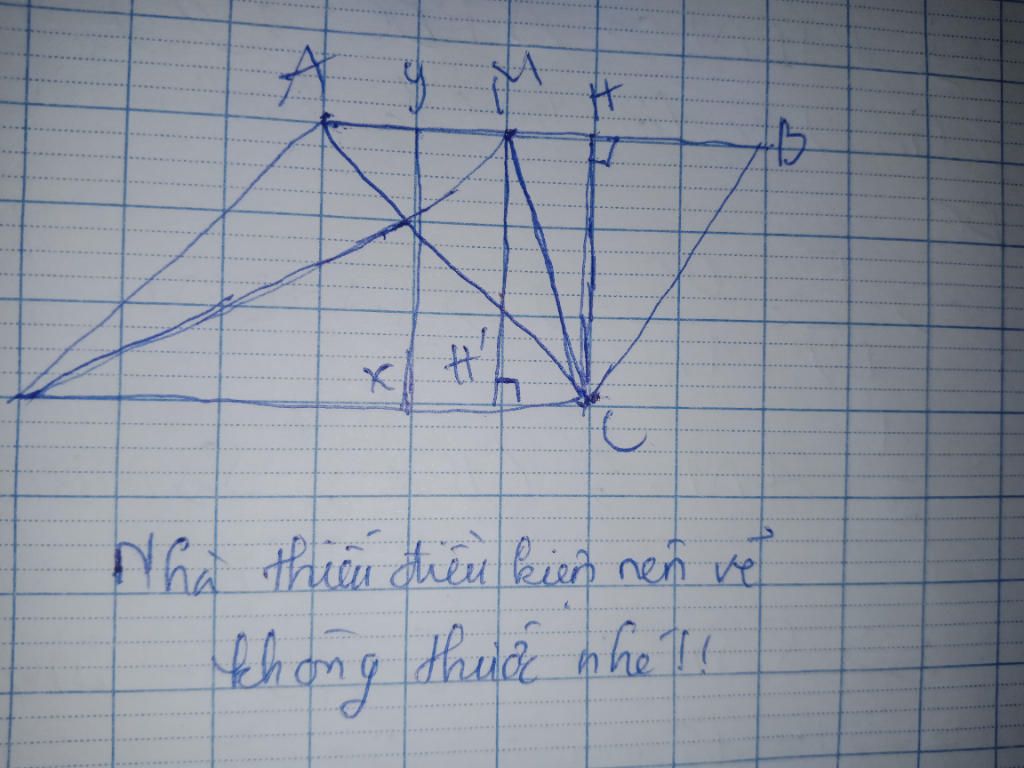 A y M H
B
x H'
C
Nhà thiếu điều kiện nên vẽ
không thước nhé!!